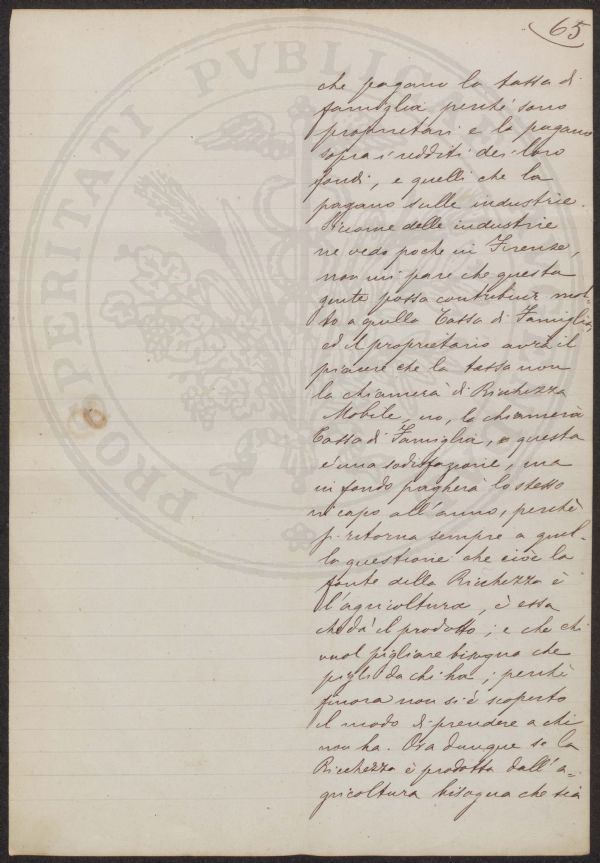 65
che pagano la tassa di
famiglia perchè sono
proprietari e la pagano
sopra i redditi dei loro
fondi, e quelli che la
pagano sulle industrie.
Siccome delle industrie
ne vedo poche in Firenze,
non mi pare che questa
gente possa contribuir mol-
to a quella Tassa di Famiglia,
ed il proprietario avrà il
piacere che la tassa non
la chiamerà di Ricchezza
Mobile, no, la chiamerà
Tassa di Famiglia, e questa
è una sodisfazione, ma
in fondo pagherà lo stesso
in capo all'anno, perchè
si ritorna sempre a quel-
la questione che cioè la
fonte della Ricchezza è
l'agricoltura, è essa
che dà il prodotto; e che chi
vuol pigliare bisogna che
pigli da chi ha; perchè
finora non si è scoperto
il modo di prendere a chi
non ha. Ora dunque se la
Ricchezza è prodotta dall'a-
gricoltura bisogna che sia
PROSPERITATI PVBLICAE